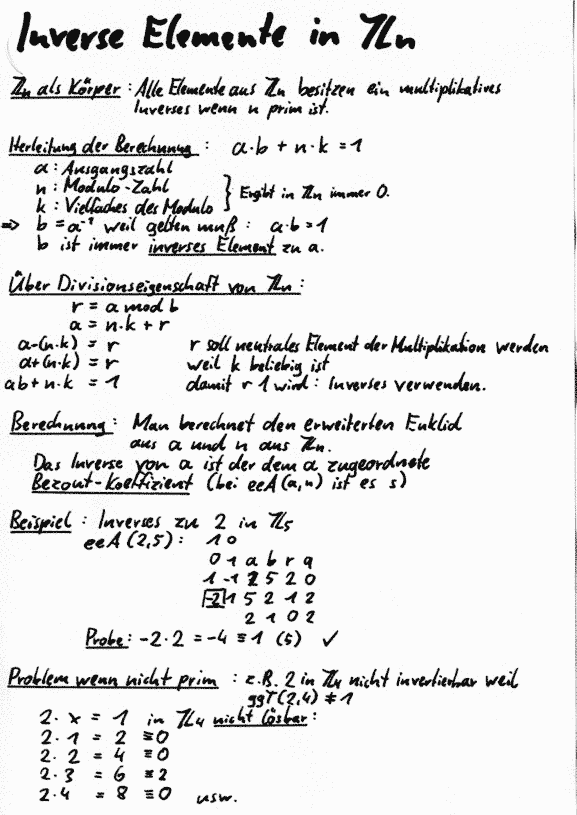 Inverse Elemente in ℤn
ℤn als Körper : Alle Elemente aus ℤn besitzen ein multiplikatives
Inverses wenn n prim ist.
Herleitung der Berechnung : a·b + n·k = 1
a : Ausgangszahl
n : Modulo-Zahl
k : Vielfaches des Modulo } Ergibt in ℤn immer 0.
=> b = a⁻¹ weil gelten muß : a·b = 1
b ist immer inverses Element zu a.
Über Divisionseigenschaft von ℤn :
r = a mod b
a = n·k + r
a-(n·k) = r r soll neutrales Element der Multiplikation werden
a+(n·k) = r weil k beliebig ist
ab + n·k = 1 damit r 1 wird : Inverses verwenden.
Berechnung : Man berechnet den erweiterten Euklid
aus a und n aus ℤn.
Das Inverse von a ist der dem a zugeordnete
Bezout-Koeffizient (bei eeA(a,n) ist es s)
Beispiel : Inverses zu 2 in ℤ5
eeA(2,5) : 1 0
0 1 a b r q
1 -1 2 5 2 0
-2 1 5 2 1 2
2 1 0 2
Probe : -2·2 = -4 ≡ 1 (5) ✓
Problem wenn nicht prim : z.B. 2 in ℤ4 nicht invertierbar weil
ggT(2,4) ≠ 1
2·x = 1 in ℤ4 nicht lösbar :
2·1 = 2 ≡ 0
2·2 = 4 ≡ 0
2·3 = 6 ≡ 2
2·4 = 8 ≡ 0 usw.